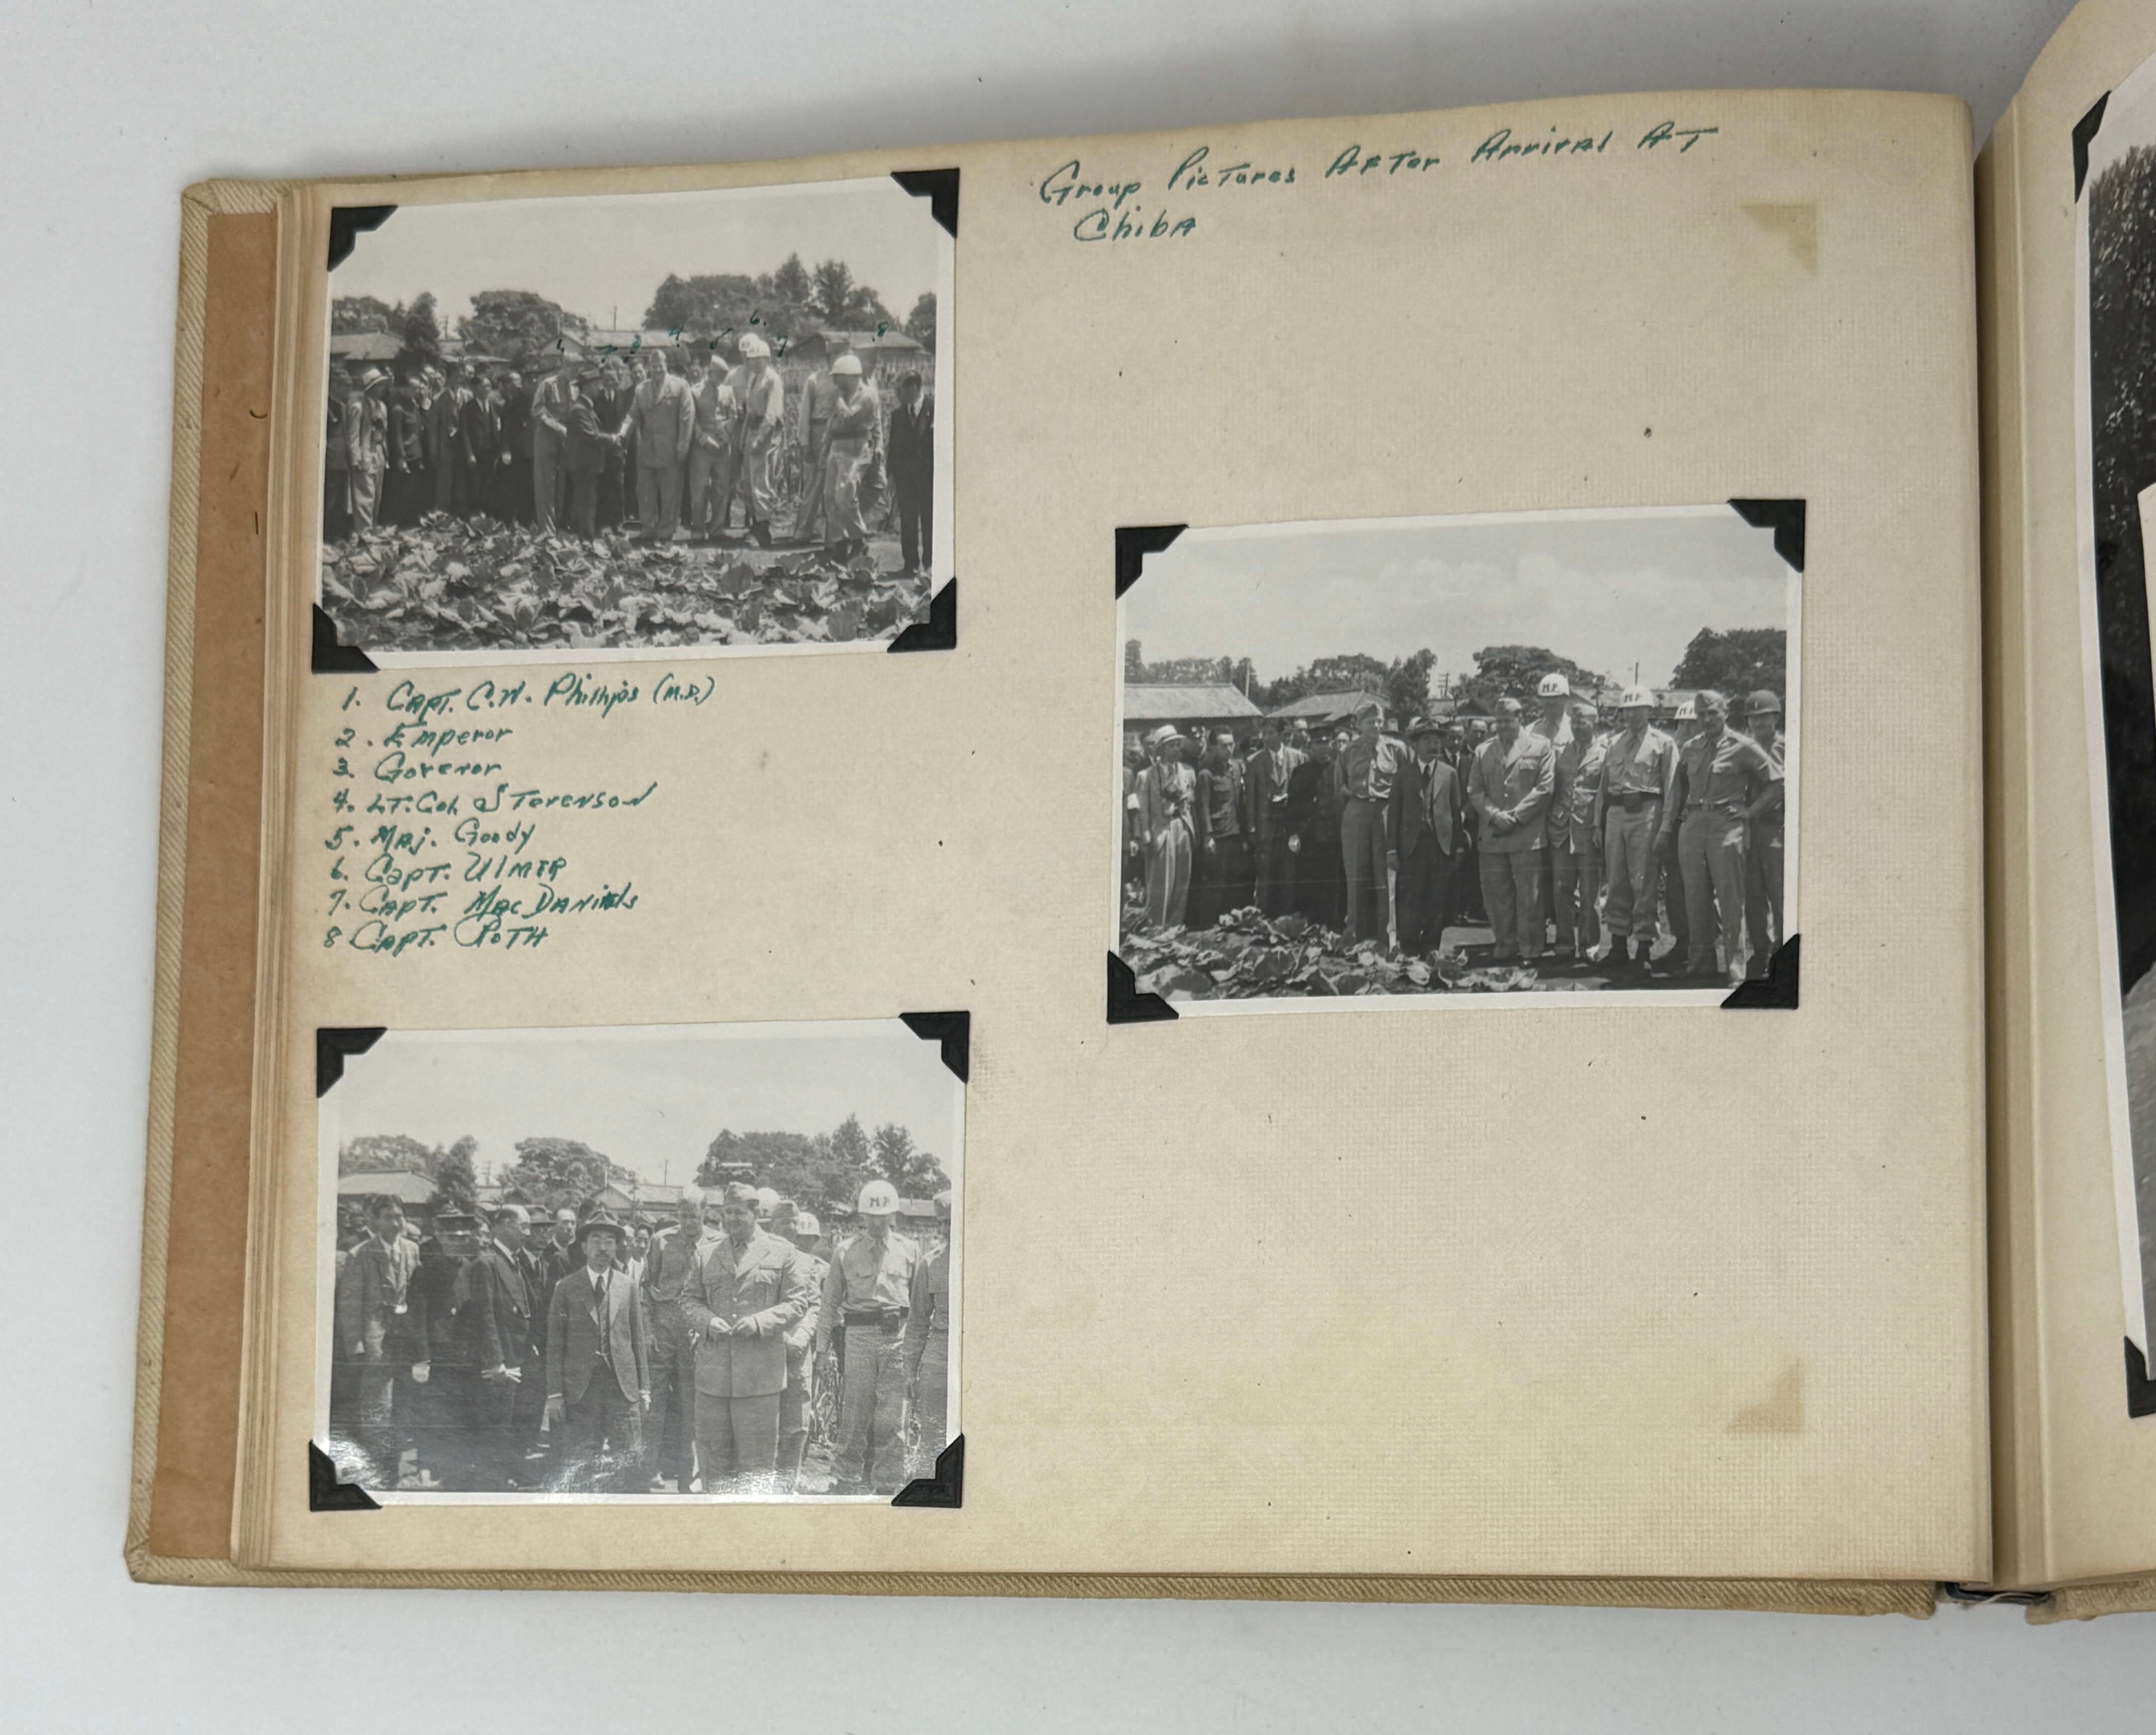 Group Pictures After Arrival At
Chiba
1. 2 3 4 5 6. 7 8
1. Capt. C.W. Phillips (M.D.)
2. Emperor
3. Govenor
4. Lt. Col Stevenson
5. Maj. Goody
6. Capt. Ulmer
7. Capt. MacDaniels
8 Capt. Roth
M.P.
M.P.
M.P.
M.P.
M.P.